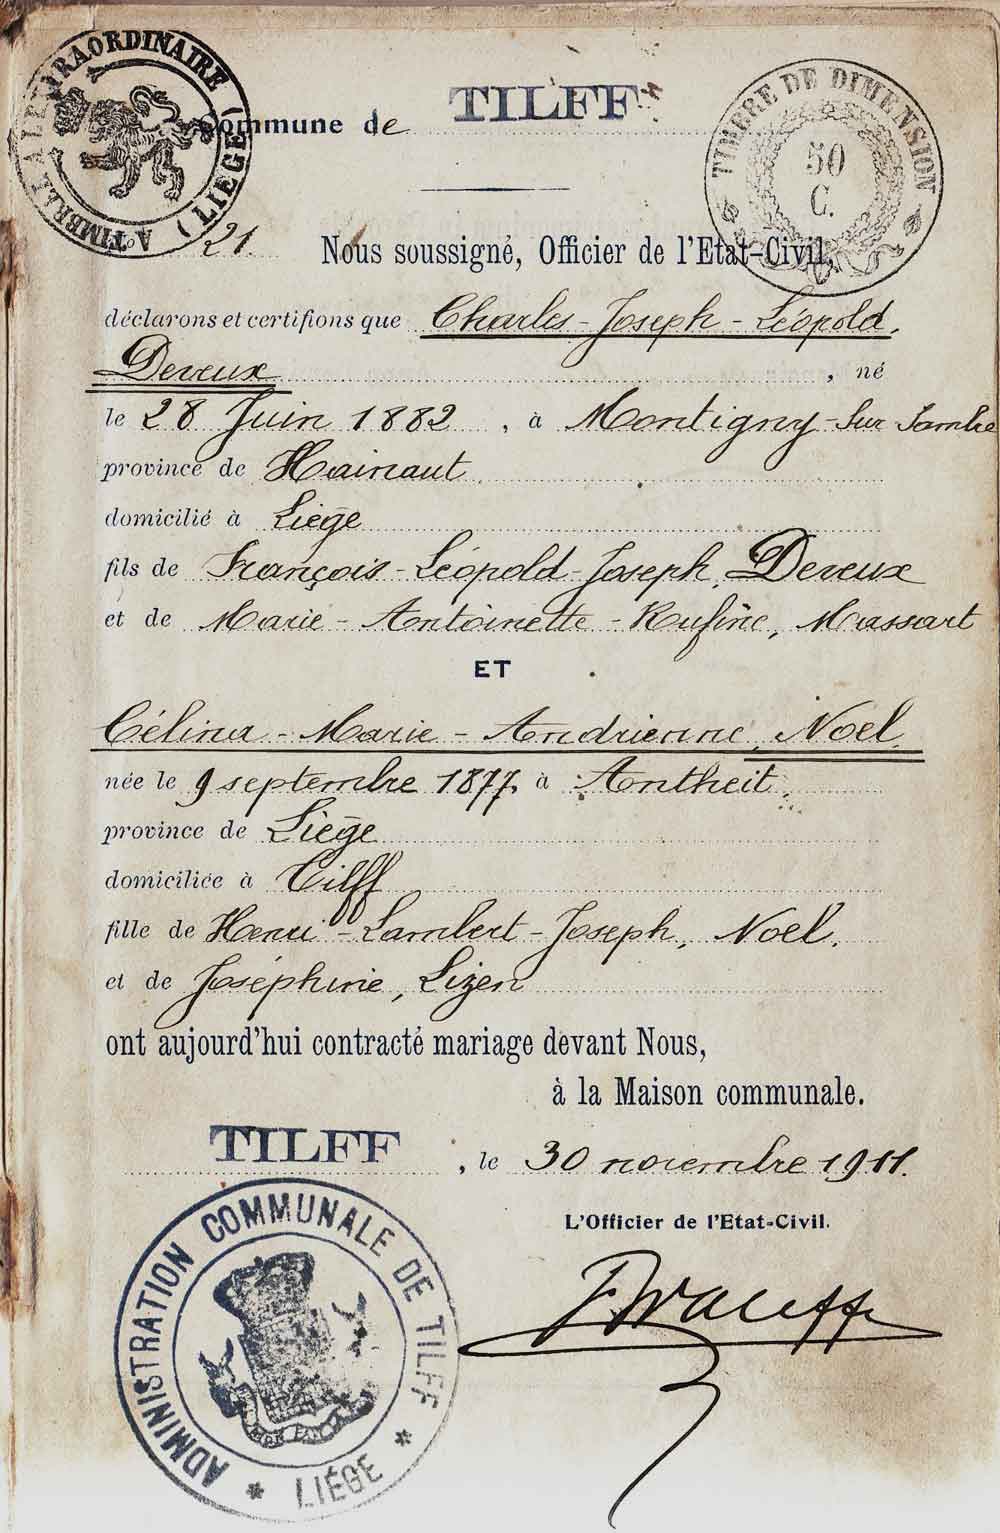 TIMBRE A L'EXTRAORDINAIRE (LIÉGE)
Commune de TILFF
TIMBRE DE DIMENSION
50
C.
No 21. Nous soussigné, Officier de l'Etat-Civil,
déclarons et certifions que Charles - Joseph - Léopold,
Deveux, né
le 28 Juin 1882, à Montigny-sur Sambre
province de Hainaut
domicilié à Liége
fils de François - Léopold - Joseph, Deveux
et de Marie - Antoinette - Rufine, Massart
ET
Célina - Marie - Andrienne, Noel,
née le 9 septembre 1877, à Antheit,
province de Liége
domiciliée à Tilff
fille de Henri - Lambert - Joseph, Noel,
et de Joséphine, Lizen
ont aujourd'hui contracté mariage devant Nous,
à la Maison communale.
TILFF, le 30 novembre 1911.
L'Officier de l'Etat-Civil.
ADMINISTRATION COMMUNALE DE TILFF
* LIÉGE *